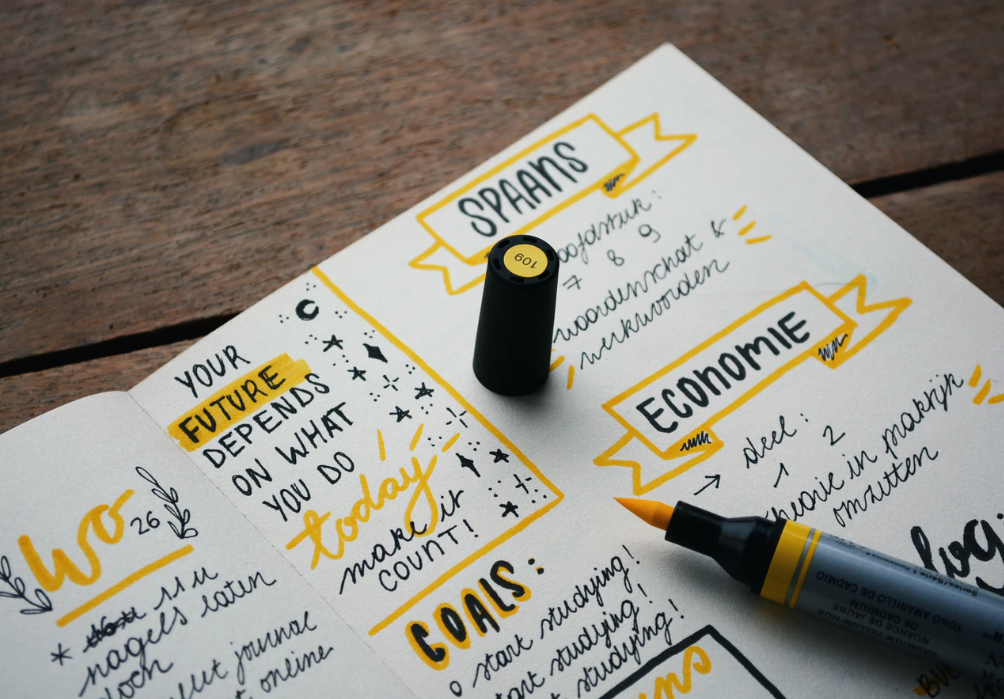 Wo
26
11 u
nagels laten
journal
online
YOUR
FUTURE
DEPENDS
ON WHAT
YOU DO
today
make it
COUNT!
GOALS:
start studying!
start studying!
studying!
SPAANS
7 8 9
woordenschat &
werkwoorden
ECONOMIE
→ deel:
1 2
theorie in praktijk
omzetten
109
NUANCE DE JAUNE
DE CADMIUM
TONO AMARILLO DE CADMIO